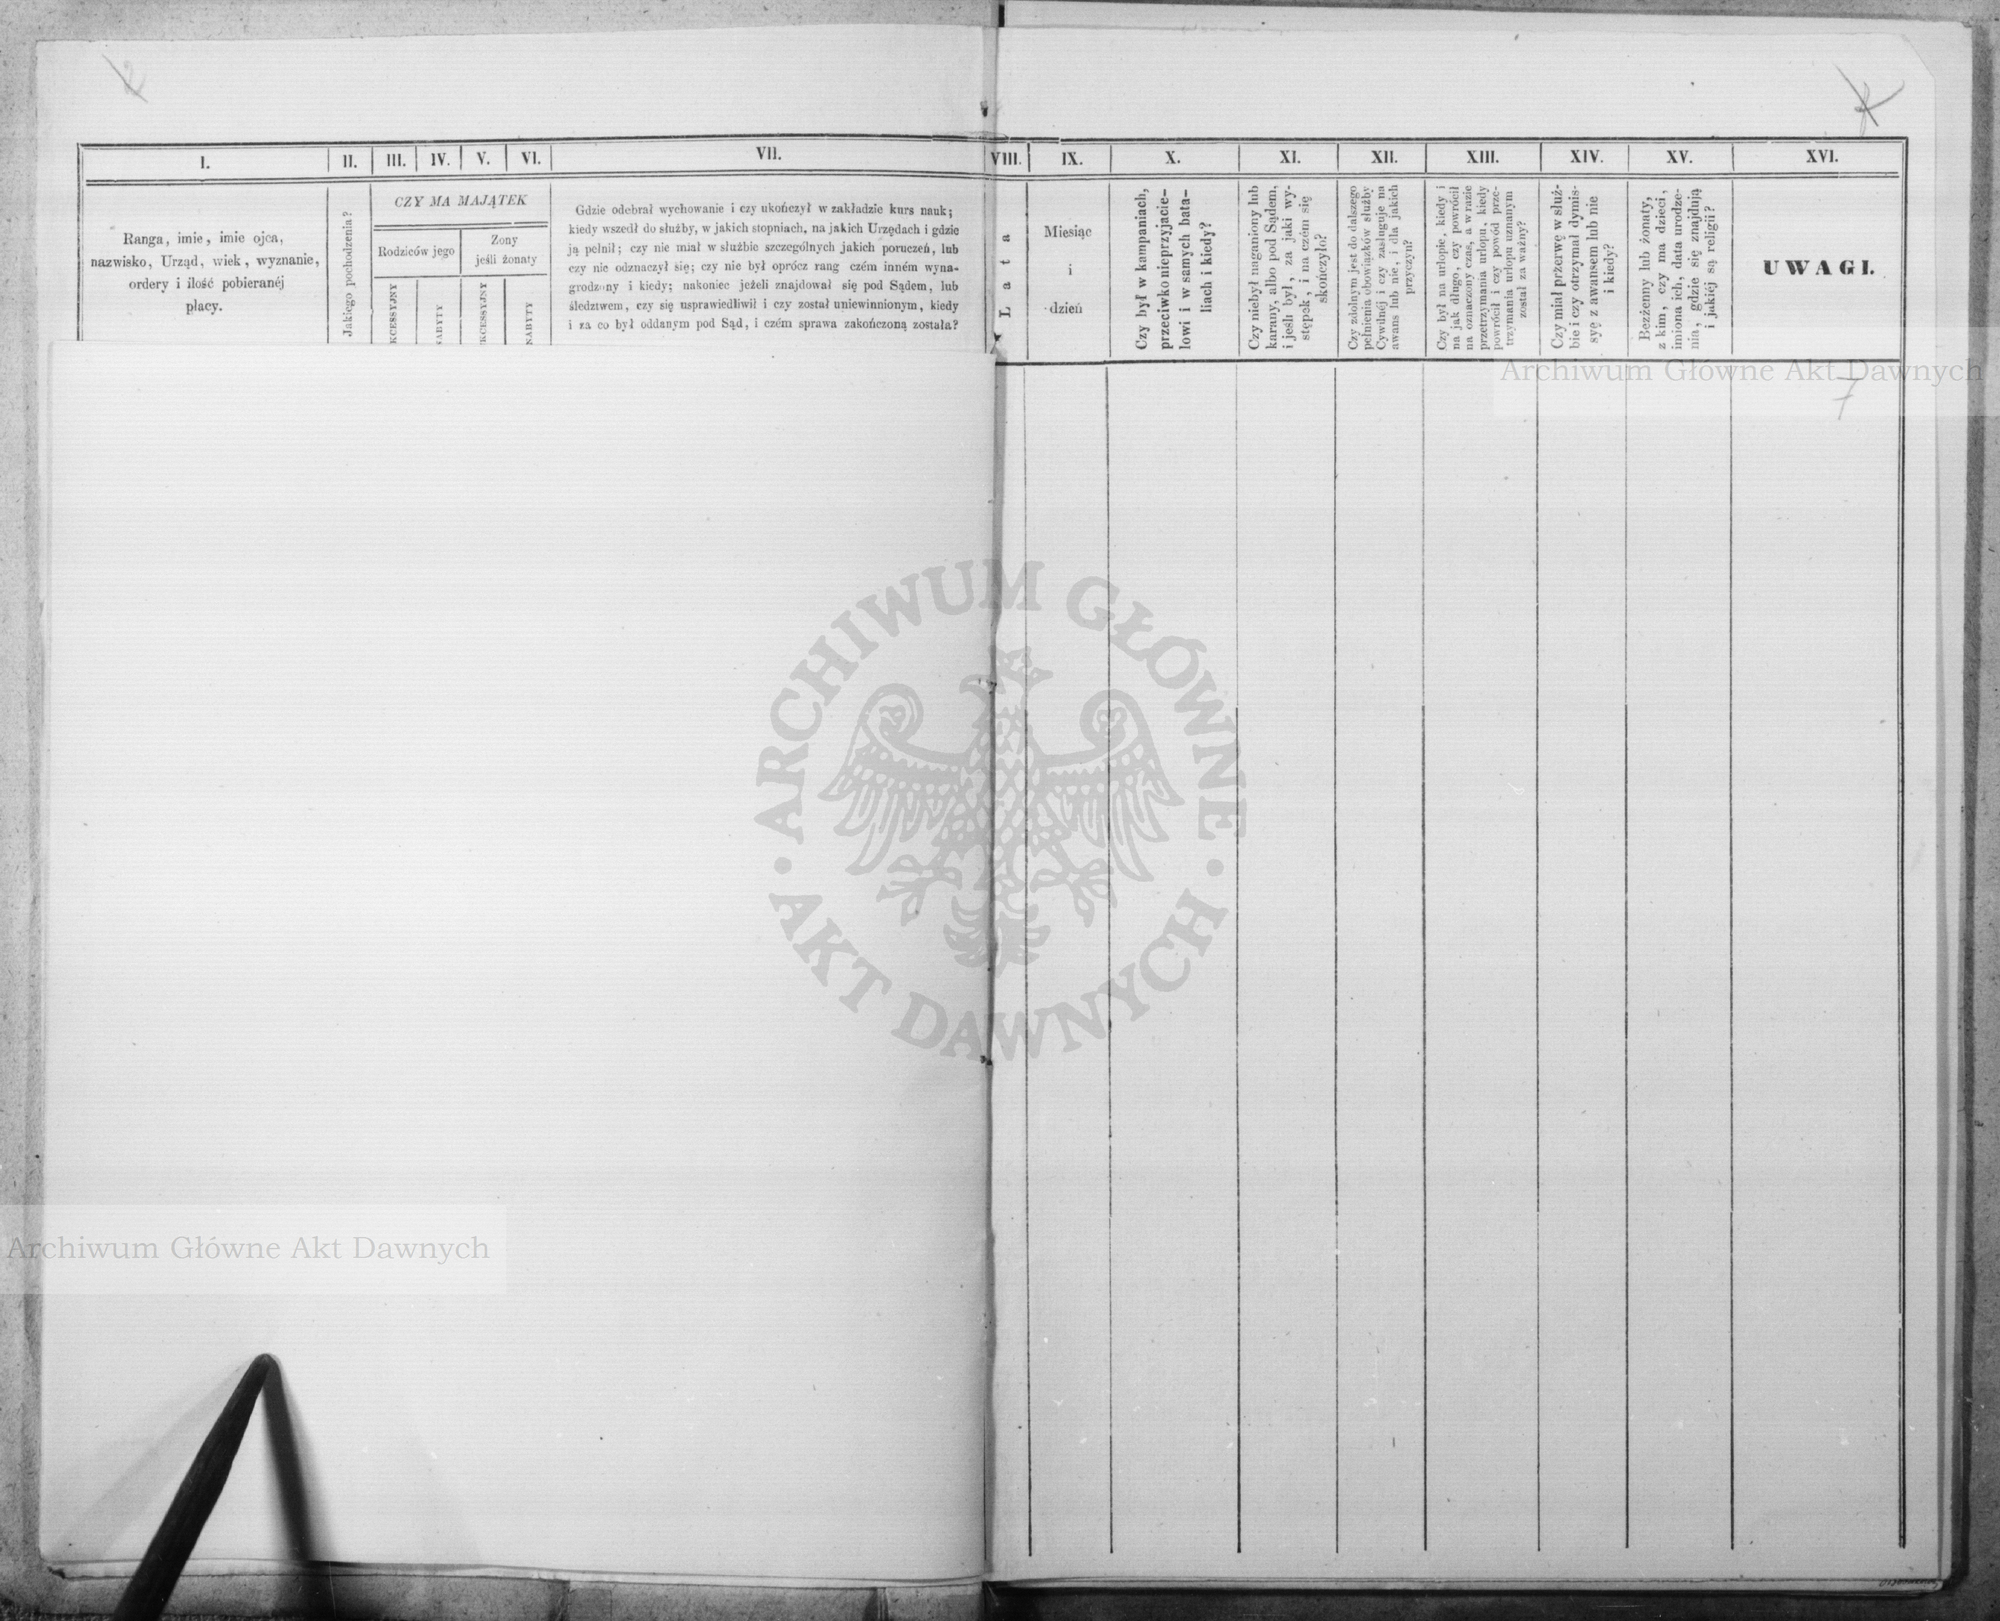 2
I.
II.
III.
IV.
V.
VI.
VII.
VIII.
IX.
X.
XI.
XII.
XIII.
XIV.
XV.
XVI.
Ranga, imie, imie ojca,
nazwisko, Urząd, wiek, wyznanie,
ordery i ilość pobieranéj
płacy.
Jakiego pochodzenia?
CZY MA MAJĄTEK
Rodziców jego
Zony
jeśli żonaty
KCESSYJNY
NABYTY
KCESSYJNY
NABYTY
Gdzie odebrał wychowanie i czy ukończył w zakładzie kurs nauk;
kiedy wszedł do służby, w jakich stopniach, na jakich Urzędach i gdzie
ją pełnił; czy nie miał w służbie szczególnych jakich poruczeń, lub
czy nie odznaczył się; czy nie był oprócz rang czém inném wyna-
grodzony i kiedy; nakoniec jeżeli znajdował się pod Sądem, lub
śledztwem, czy się usprawiedliwił i czy został uniewinnionym, kiedy
i za co był oddanym pod Sąd, i czém sprawa zakończoną została?
Lata
Miesiąc
i
dzień
Czy był w kampaniach,
przeciwko nieprzyjacie-
lowi i w samych bata-
liach i kiedy?
Czy niebył naganiony lub
karany, albo pod Sądem,
i jeśli był, za jaki wy-
stępek, i na czém się
skończyło?
Czy zdolnym jest do dalszego
pełnienia obowiązków służby
Cywilnéj i czy zasługuje na
awans lub nie, i dla jakich
przyczyn?
Czy był na urlopie, kiedy i
na jak długo, czy powrócił
na oznaczony czas, a w razie
przetrzymania urlopu, kiedy
powrócił i czy powód prze-
trzymania urlopu uznanym
został za ważny?
Czy miał przerwę w służ-
bie i czy otrzymał dymis-
syę z awansem lub nie
i kiedy?
Bezżenny lub żonaty,
z kim, czy ma dzieci,
imiona ich, data urodze-
nia, gdzie się znajdują
i jakiéj są religii?
UWAGI.
7
Archiwum Główne Akt Dawnych
ARCHIWUM GŁÓWNE
AKT DAWNYCH
Archiwum Główne Akt Dawnych